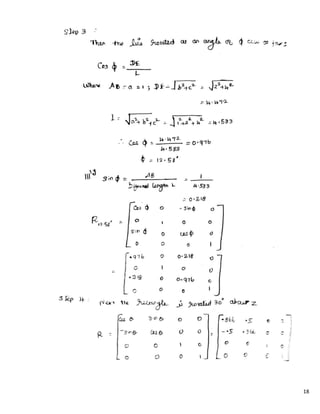 Step 3 :-
Then the line rotated at an angle of φ
Cos φ = DE / L
where AB = a = 1 ; DE = √b²+c² = √2²+4²
= 4.472
l = √a²+b²+c² = √1²+2²+4² = 4.583
∴ Cos φ = 4.472 / 4.583 = 0.976
φ = 12.58°
III ly Sin φ = AB / Diagonal Length L = 1 / 4.583
= 0.218
R12.58° = [ Cos φ 0 -Sin φ 0
0 1 0 0
Sin φ 0 Cos φ 0
0 0 0 1 ]
= [ .976 0 0.218 0
0 1 0 0
0 0.976 0
0 0 0 1 ]
Step 4 : the rectangle is rotated 30° about z
R = [ Cos θ Sin θ 0 0 = [ .866 .5 0
-Sin θ Cos θ 0 0 -.5 .866
0 0 1 0 0 0
0 0 0 1 ] 0 0
18